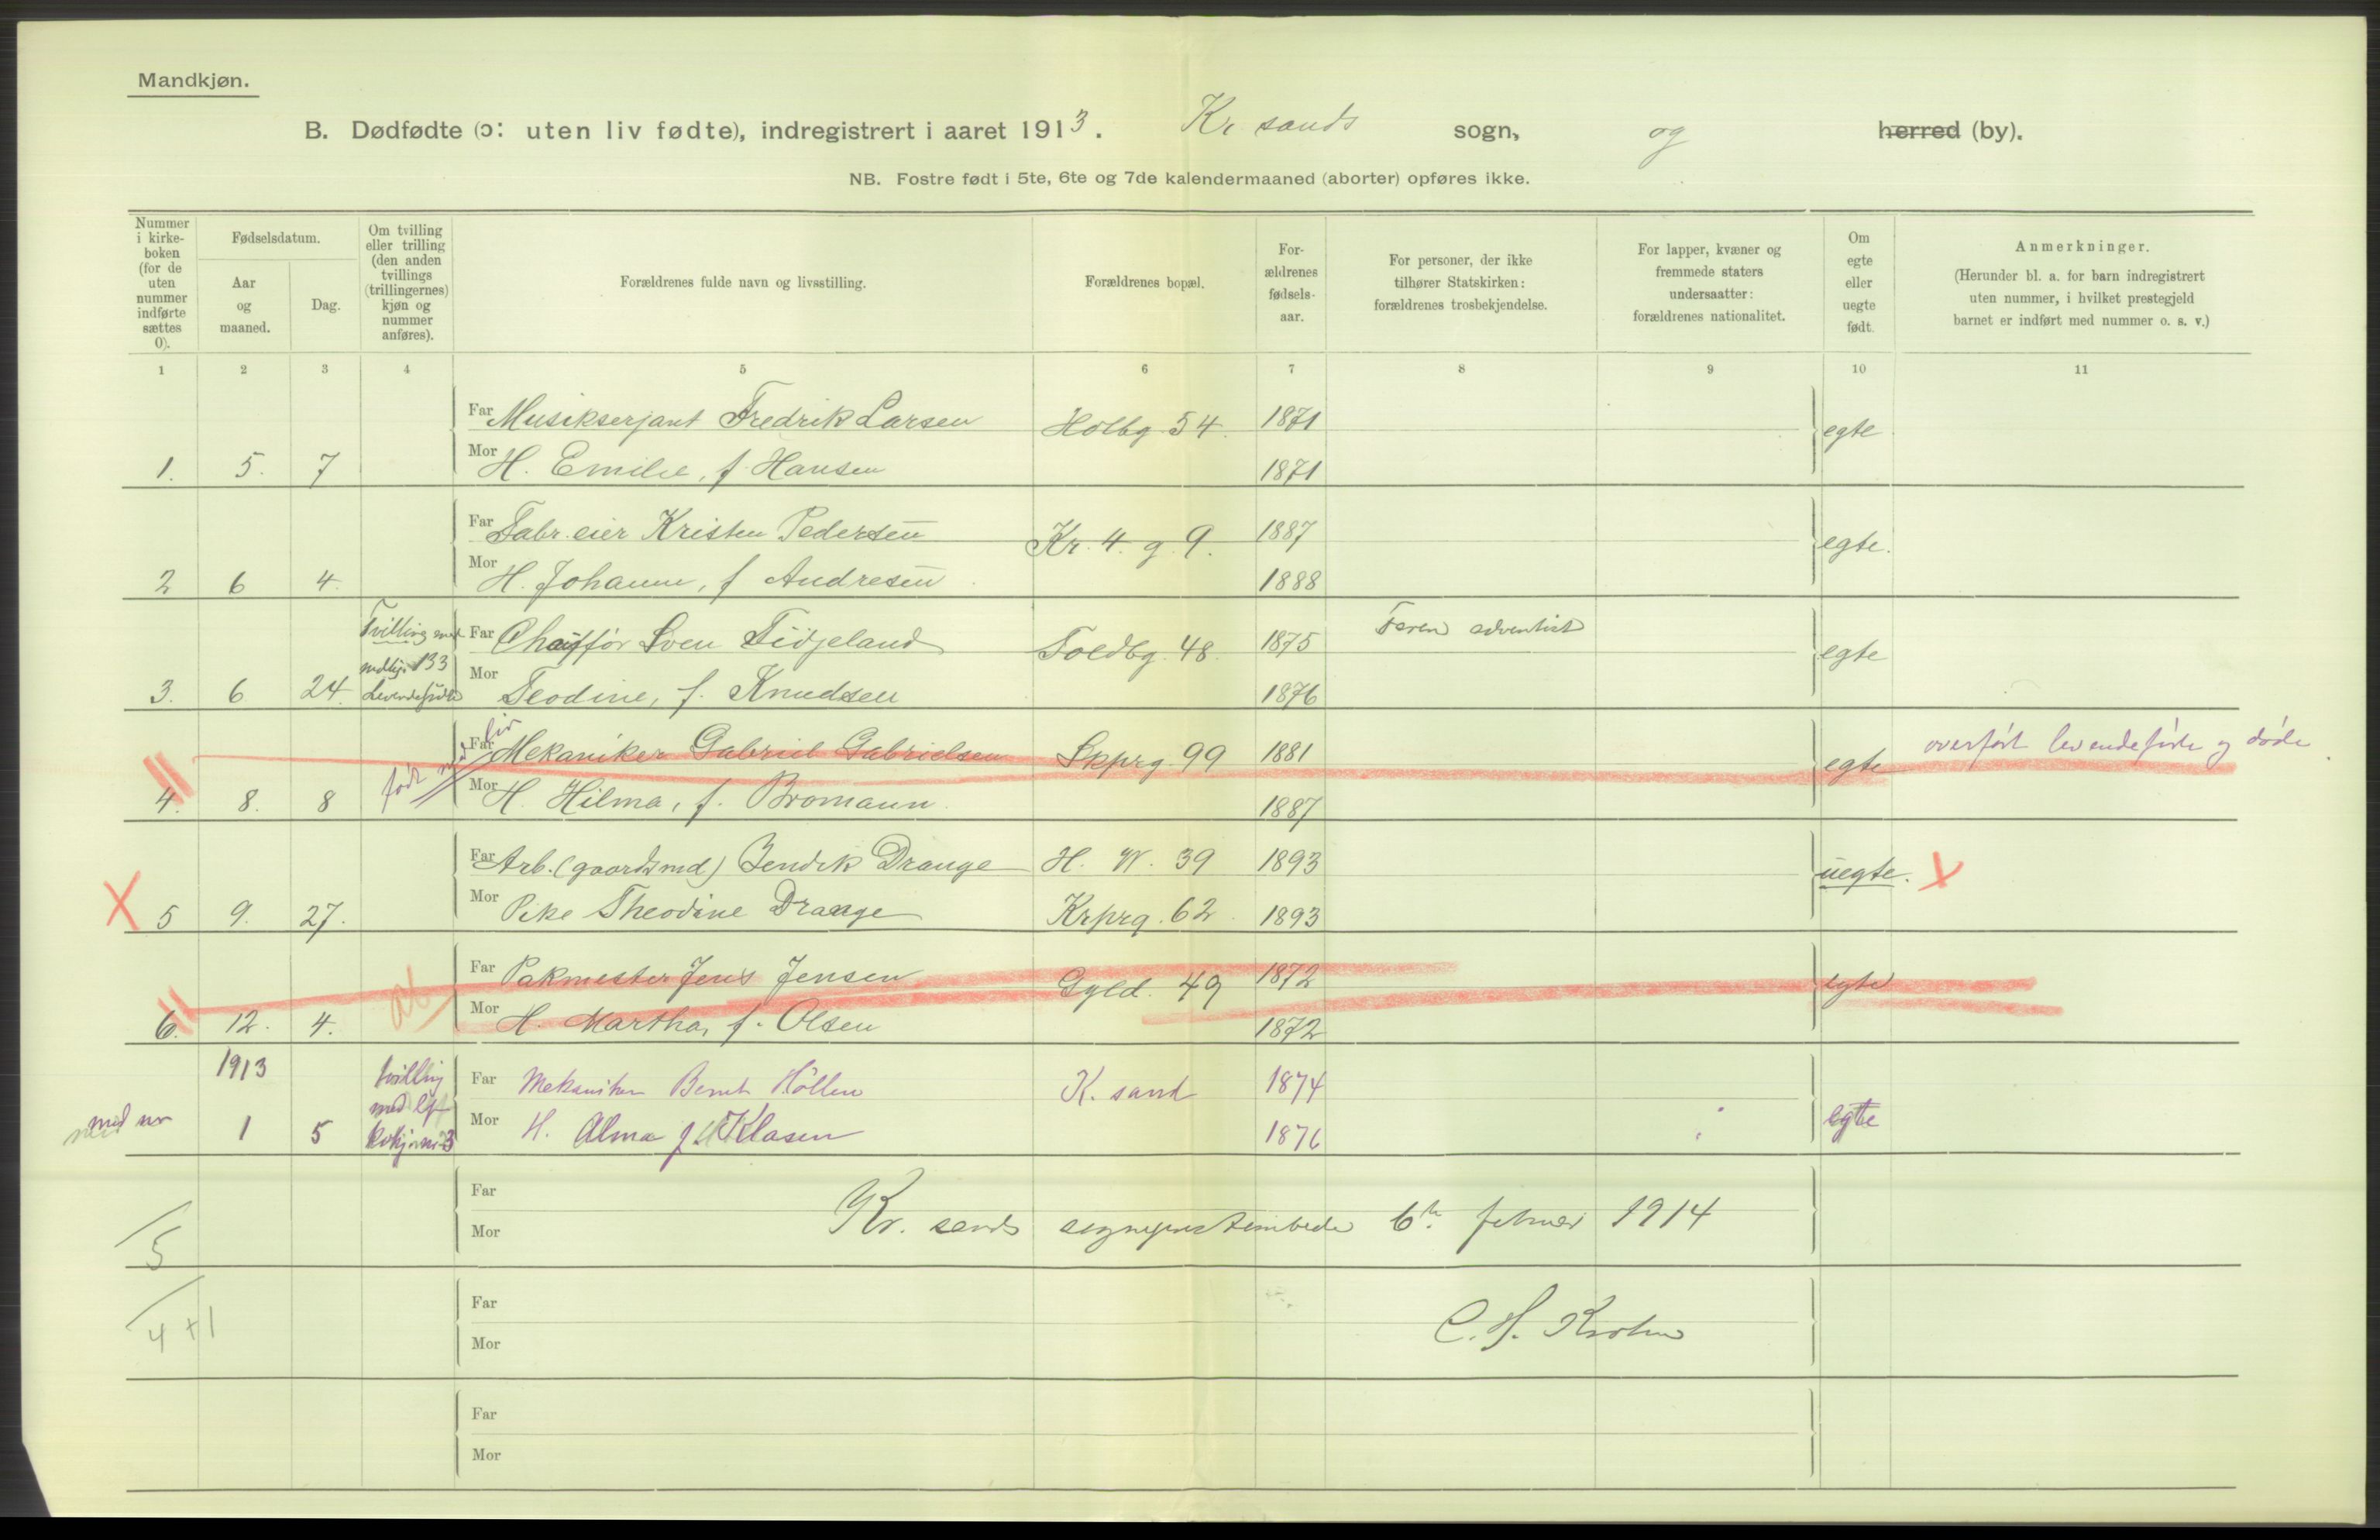 Mandkjøn.
B. Dødfødte (ɔ: uten liv fødte), indregistrert i aaret 1913. Kr sands sogn, og herred (by).
NB. Fostre født i 5te, 6te og 7de kalendermaaned (aborter) opføres ikke.
Nummer i kirke-boken (for de uten nummer indførte sættes 0).
Fødselsdatum.
Aar og maaned.
Dag.
Om tvilling eller trilling (den anden tvillings (trillingernes) kjøn og nummer anføres).
Forældrenes fulde navn og livsstilling.
Forældrenes bopæl.
For-ældrenes fødsels-aar.
For personer, der ikke tilhører Statskirken: forældrenes trosbekjendelse.
For lapper, kvæner og fremmede staters undersaatter: forældrenes nationalitet.
Om egte eller uegte født.
Anmerkninger.
(Herunder bl. a. for barn indregistrert uten nummer, i hvilket prestegjeld barnet er indført med nummer o. s. v.)
1 2 3 4 5 6 7 8 9 10 11
Far Musikserjant Fredrik Larsen Holbg 54. 1871 egte
1. 5. 7 Mor H. Emilie, f. Hansen 1871
Far Fabr. eier Kristen Pedersen Kr. 4. g. 9. 1887 egte.
2 6 4. Mor H. Johanne, f Andresen 1888
Tvilling med Far Chauffør Sven Tidjeland Toldbg. 48. 1875 Faren adventist egte
133
3. 6 24. Levendefødte Mor Teodine, f. Knudsen 1876
født med liv Far Mekaniker Gabriel Gabrielsen Skprg. 99 1881 egte overført levendefødte og døde
4. 8. 8 Mor H. Hilma, f. Bromann. 1887
Far Arb. (gaardsmd) Bendik Drange H. W. 39 1893 uegte. X
X 5 9. 27. Mor Pike Theodine Drange Krprg. 62. 1893
Far Pakmester Jens Jensen Gyld. 49 1872 egte
6. 12. 4. ab Mor H. Martha, f. Olsen 1872
1913 tvilling Far Mekaniker Bernt Höllen K. sand 1874 egte
med
1 5 Mor H. Alma f. Klasen 1876
Far
Kr. sands sogneprestembede 6te februar 1914
5 Mor
Far
4 + 1 C. H. Krohn
Mor
Far
Mor